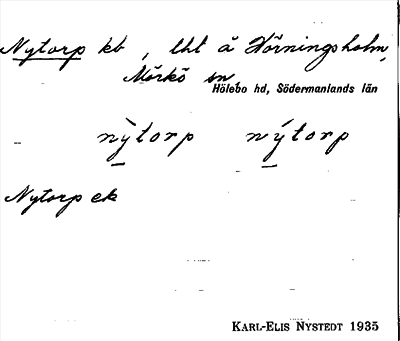 Nytorp kb , tht å Hörningsholm,
Mörkö sn,
Hölebo hd, Södermanlands län
nỳtorp nýtorp
Nytorp ek
KARL-ELIS NYSTEDT 1935